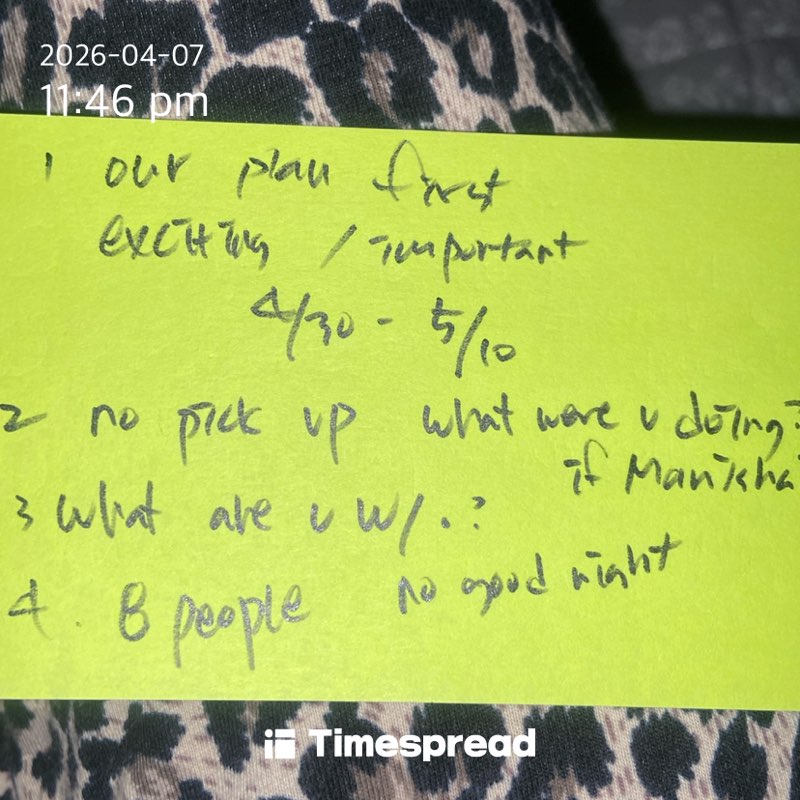 2026-04-07
11:46 pm
1 our plan first
exciting / important
4/30 - 5/10
2 no pick up what were u doing?
if Manisha
3 what are u w/.?
4. 8 people no good night
Timespread